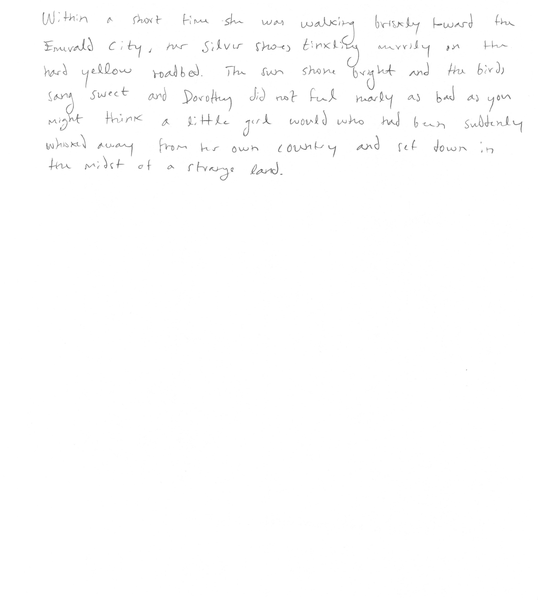 Within a short time she was walking briskly toward the
Emerald City, her Silver Shoes tinkling merrily on the
hard yellow roadbed. The sun shone bright and the birds
sang sweet and Dorothy did not feel nearly as bad as you
might think a little girl would who had been suddenly
whisked away from her own country and set down in
the midst of a strange land.